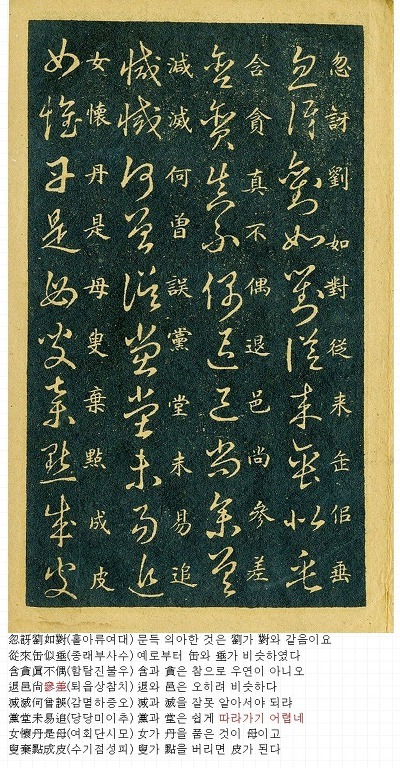 忽訝劉如對從来缶佀垂
忽訝劉如對從来缶似垂
含貪真不偶退邑尚參差
含貪真不偶退邑尚參差
減滅何曽誤黨堂未易追
減滅何曽誤黨堂未易追
女懷丹是母叟棄點成皮
女懷丹是母叟棄點成皮
忽訝劉如對(홀아류여대) 문득 의아한 것은 劉가 對와 같음이요
從來缶似垂(중래부사수) 예로부터 缶와 垂가 비슷하였다
含貪眞不偶(함탐진불우) 含과 貪은 참으로 우연이 아니오
退邑尙參差(퇴읍상참치) 退와 邑은 오히려 비슷하다
减滅何曾誤(감멸하중오) 减과 滅을 잘못 알아서야 되랴
黨堂未易追(당당미이추) 黨과 堂은 쉽게 따라가기 어렵네
女懷丹是母(여회단시모) 女가 丹을 품은 것이 母이고
叟棄點成皮(수기점성피) 叟가 點을 버리면 皮가 된다